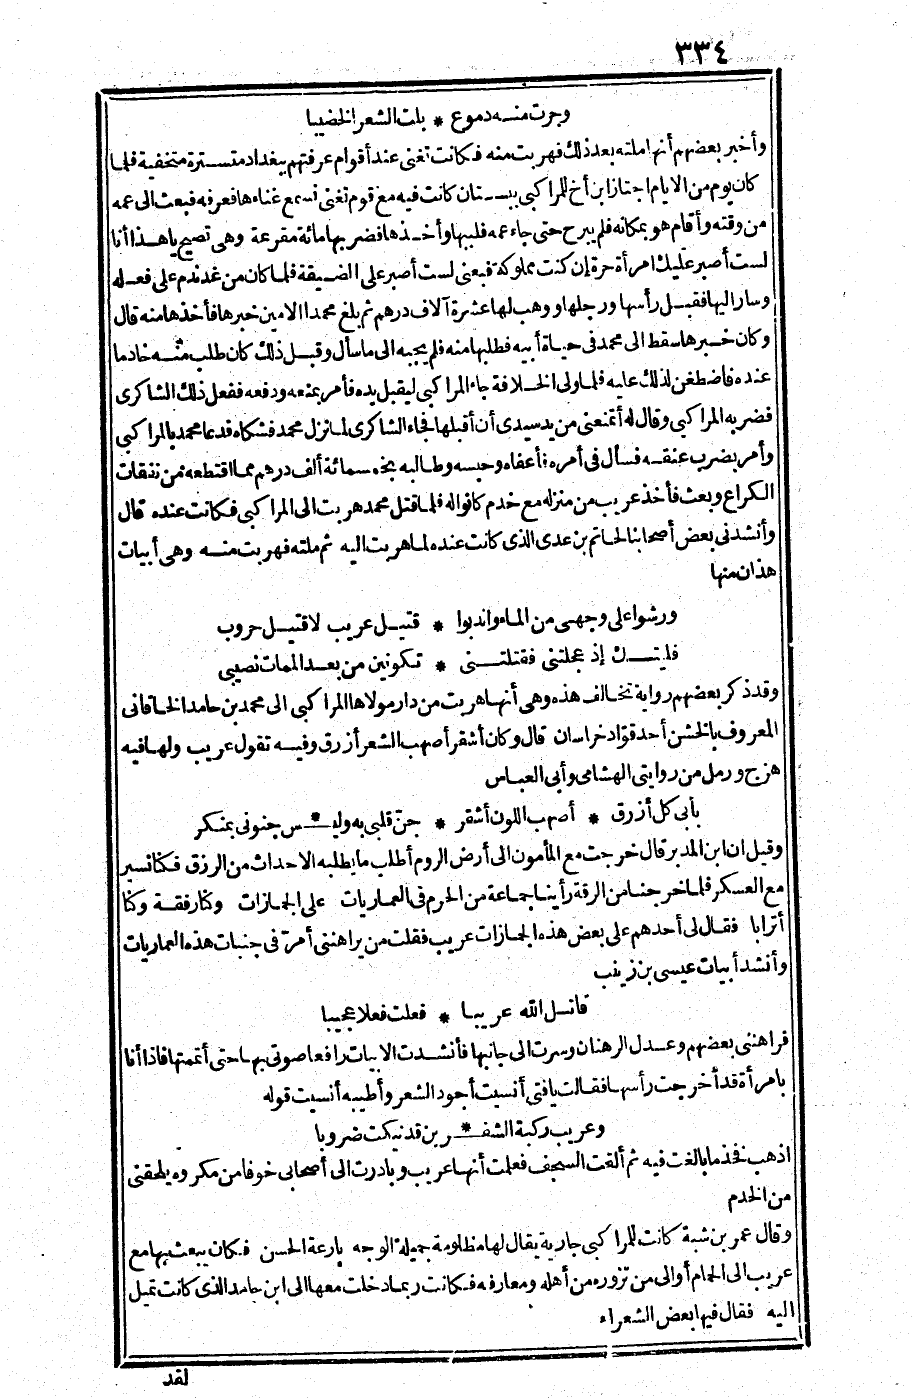 ٣٣٤
وجرت منه دموع * بلت الشعر الخضيبا
وأخبر بعضهم أنها ملته بعد ذلك فهربت منه فكانت تغنى عند أقوام عرفتهم ببغداد متسترة متخفية فلما
كان يوم من الايام اجتاز ابن أخ للمراكبى ببستان كانت فيه مع قوم تغنى فسمع غناءها فعرفه فبعث الى عمه
من وقته وأقام هو بمكانه فلم يبرح حتى جاء عمه فلببها وأخذها فضربها مائة مقرعة وهى تصيح يا هذا أنا
لست أصبر عليك امرأة حرة إن كنت مملوكة فبعنى لست أصبر على الضيقة فلما كان من غد ندم على فعله
وسار اليها فقبل رأسها ورجلها ووهب لها عشرة آلاف درهم ثم بلغ محمدا الامين خبرها فأخذها منه قال
وكان خبرها سقط الى محمد فى حياة أبيه فطلبها منه فلم يجبه الى ما سأل وقبل ذلك كان طلب منه خادما
عنده فاضطغن لذلك عليه فلما ولى الخلافة جاء المراكبى ليقبل يده فأمر بمنعه ودفعه ففعل ذلك الشاكرى
فضربه المراكبى وقال له أتمنعنى من يد سيدى أن أقبلها فجاء الشاكرى لما نزل محمد فشكاه فدعا محمد بالمراكبى
وأمر بضرب عنقه فسأل فى أمره فأعفاه وحبسه وطالبه بخمسمائة ألف درهم مما اقتطعه من نفقات
الكراع وبعث فأخذ عريب من منزله مع خدم كانوا له فلما قتل محمد هربت الى المراكبى فكانت عنده قال
وأنشدنى بعض أصحابنا لحاتم بن عدى الذى كانت عنده لما هربت اليه ثم ملته فهربت منه وهى أبيات
هذان منها
ورشوا على وجهى من الماء واندبوا * قتيل عريب لا قتيل حروب
فليتك إذ عجلتنى فقتلتنى * تكونين من بعد الممات نصيبى
وقد ذكر بعضهم رواية تخالف هذه وهى أنها هربت من دار مولاها المراكبى الى محمد بن حامد الخاقانى
المعروف بالخشن أحد قواد خراسان قال وكان أشقر أصهب الشعر أزرق وفيه تقول عريب ولها فيه
هزج ورمل من روايتى الهشامى وأبى العباس
بأبى كل أزرق * أصهب اللون أشقر * جن قلبى به وليس جنونى بمنكر
وقيل ان ابن المدبر قال خرجت مع المأمون الى أرض الروم أطلب ما يطلبه الاحداث من الرزق فكنا نسير
مع العسكر فلما خرجنا من الرقة رأينا جماعة من الحرم فى العماريات على الجمازات وكنا رفقة وكنا
أترابا فقال لى أحدهم على بعض هذه الجمازات عريب فقلت من يراهننى أمر فى جنبات هذه العماريات
وأنشد أبيات عيسى بن زينب
قاتل الله عريبا * فعلت فعلا عجيبا
فراهننى بعضهم وعدل الرهنان وسرت الى جانبها فأنشدت الابيات رافعا صوتى بها حتى أتممتها فاذا أنا
بامرأة قد أخرجت رأسها فقالت يافتى أنسيت أجود الشعر وأطيبه أنسيت قوله
وعريب ركبة الشفـ * ـرين قد نيكت ضروبا
اذهب فخذ ما بالغت فيه ثم ألقت السجف فعلمت أنها عريب وبادرت الى أصحابى خوفا من مكروه يلحقنى
من الخدم
وقال عمر بن شبة كانت للمراكبى جارية يقال لها مظلومة جميلة الوجه بارعة الحسن فكان يبعث بها مع
عريب الى الحمام أو الى من تزوره من أهله ومعارفه فكانت ربما دخلت معها الى ابن حامد الذى كانت تميل
اليه فقال فيها بعض الشعراء
لقد